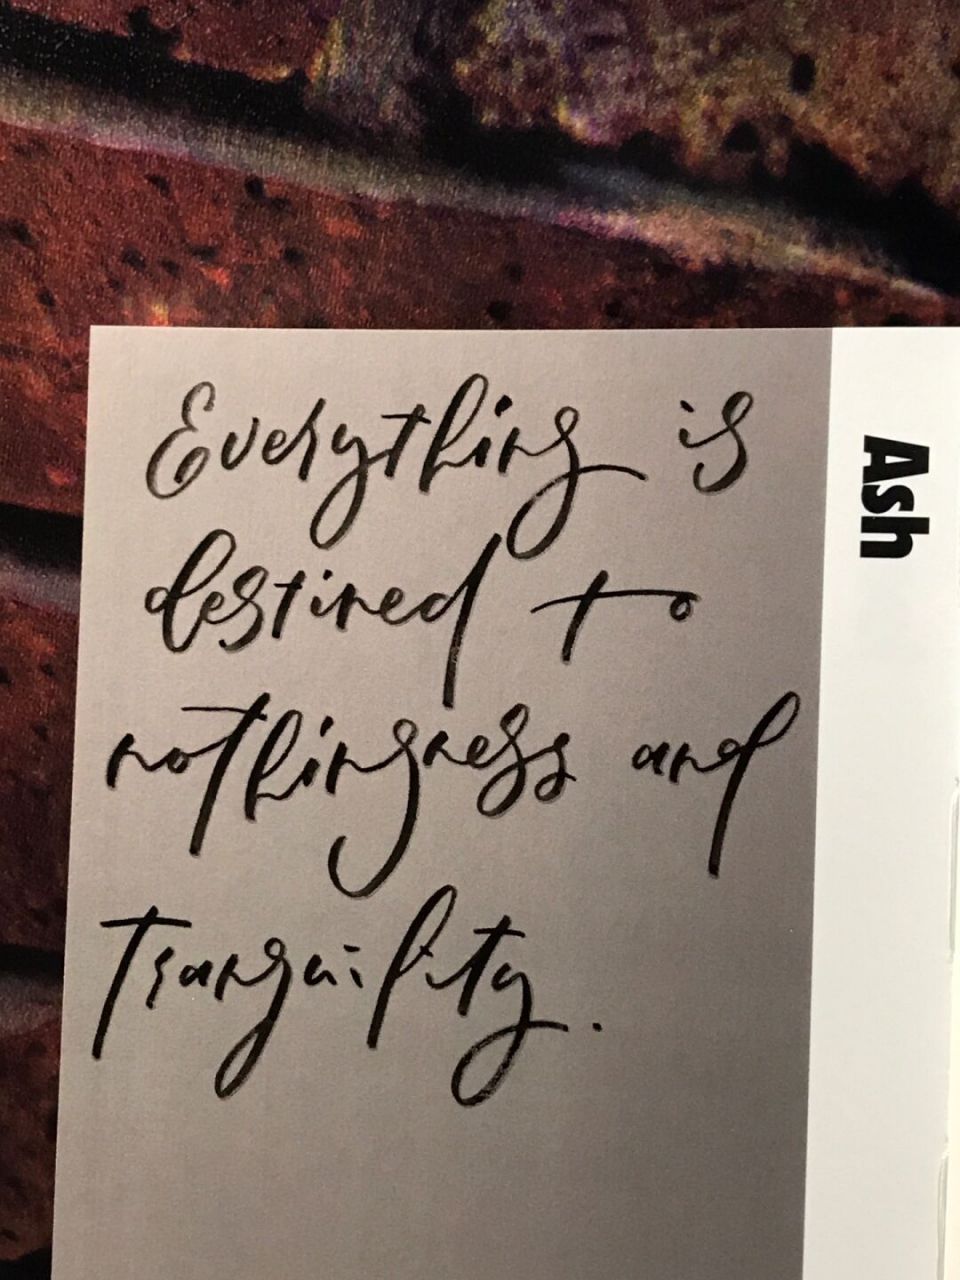 Everything is
destined to
nothingness and
tranquility.
Ash